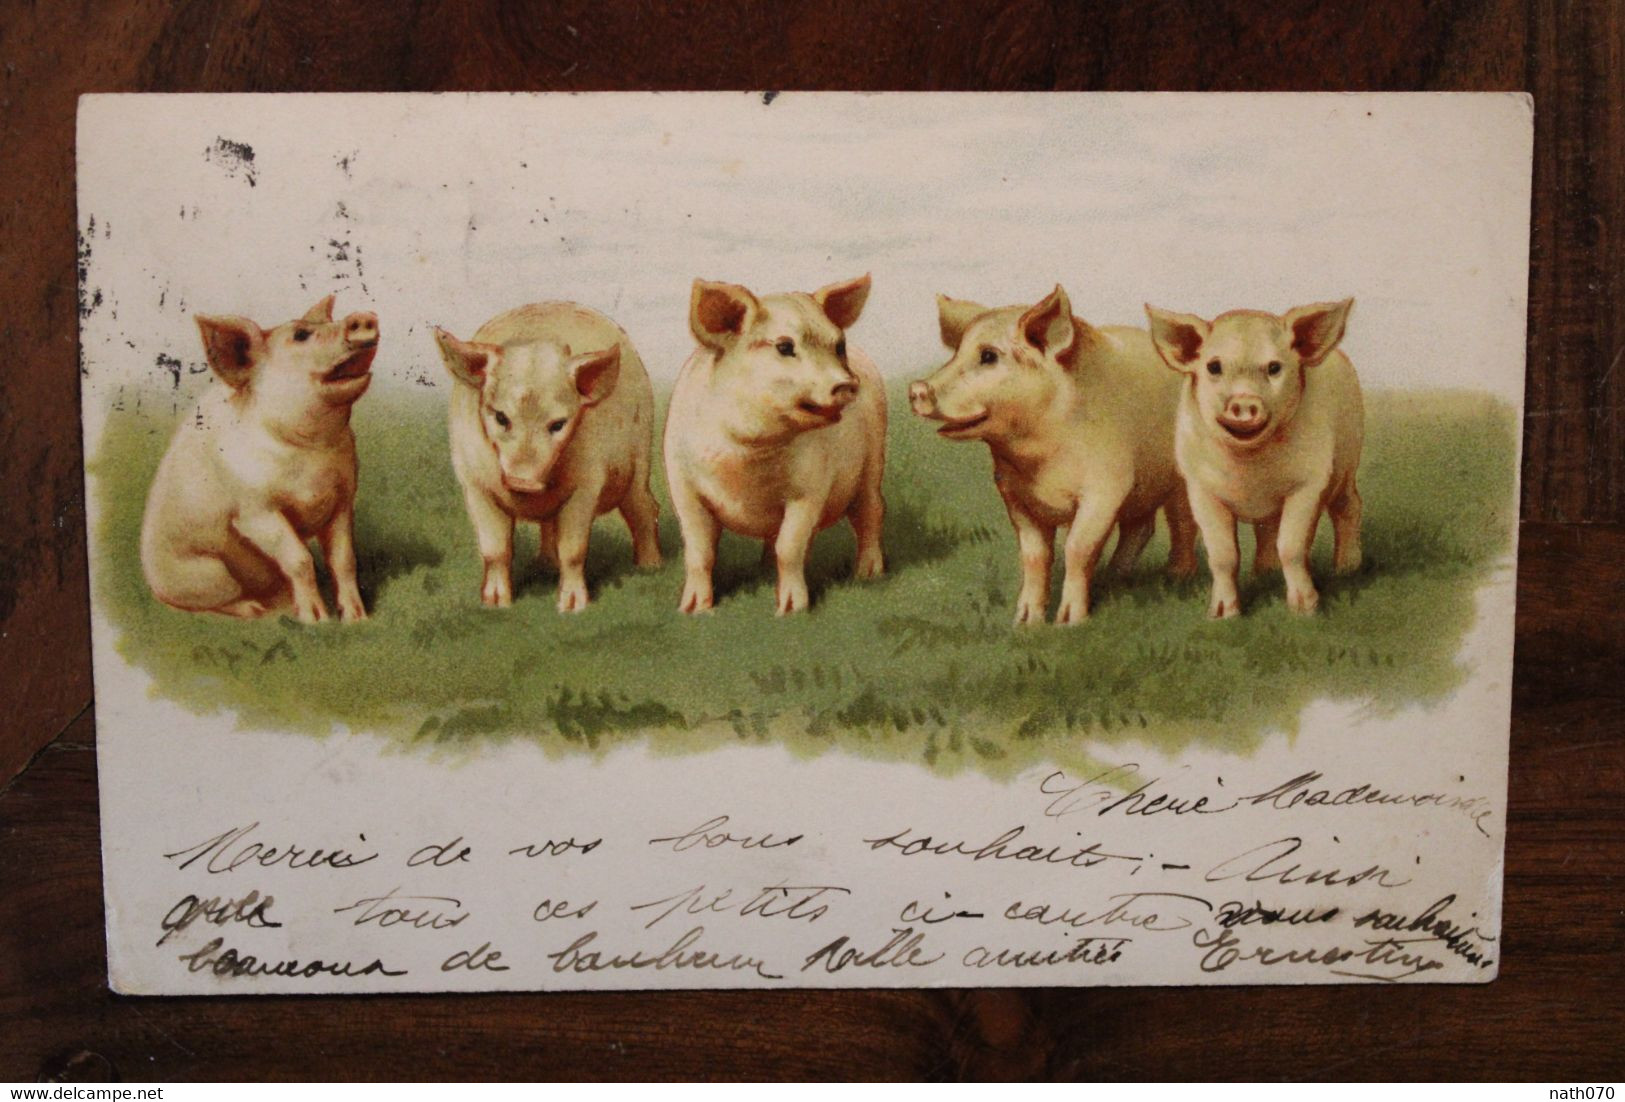 Cherè Mademoiselle
Merci de vos bons souhaits ; - Ainsi
que tous ces petits ci-contre nous souhaitons
beaucoup de bonheur Mille amitiés Ernestine
delcampe.net
nath070